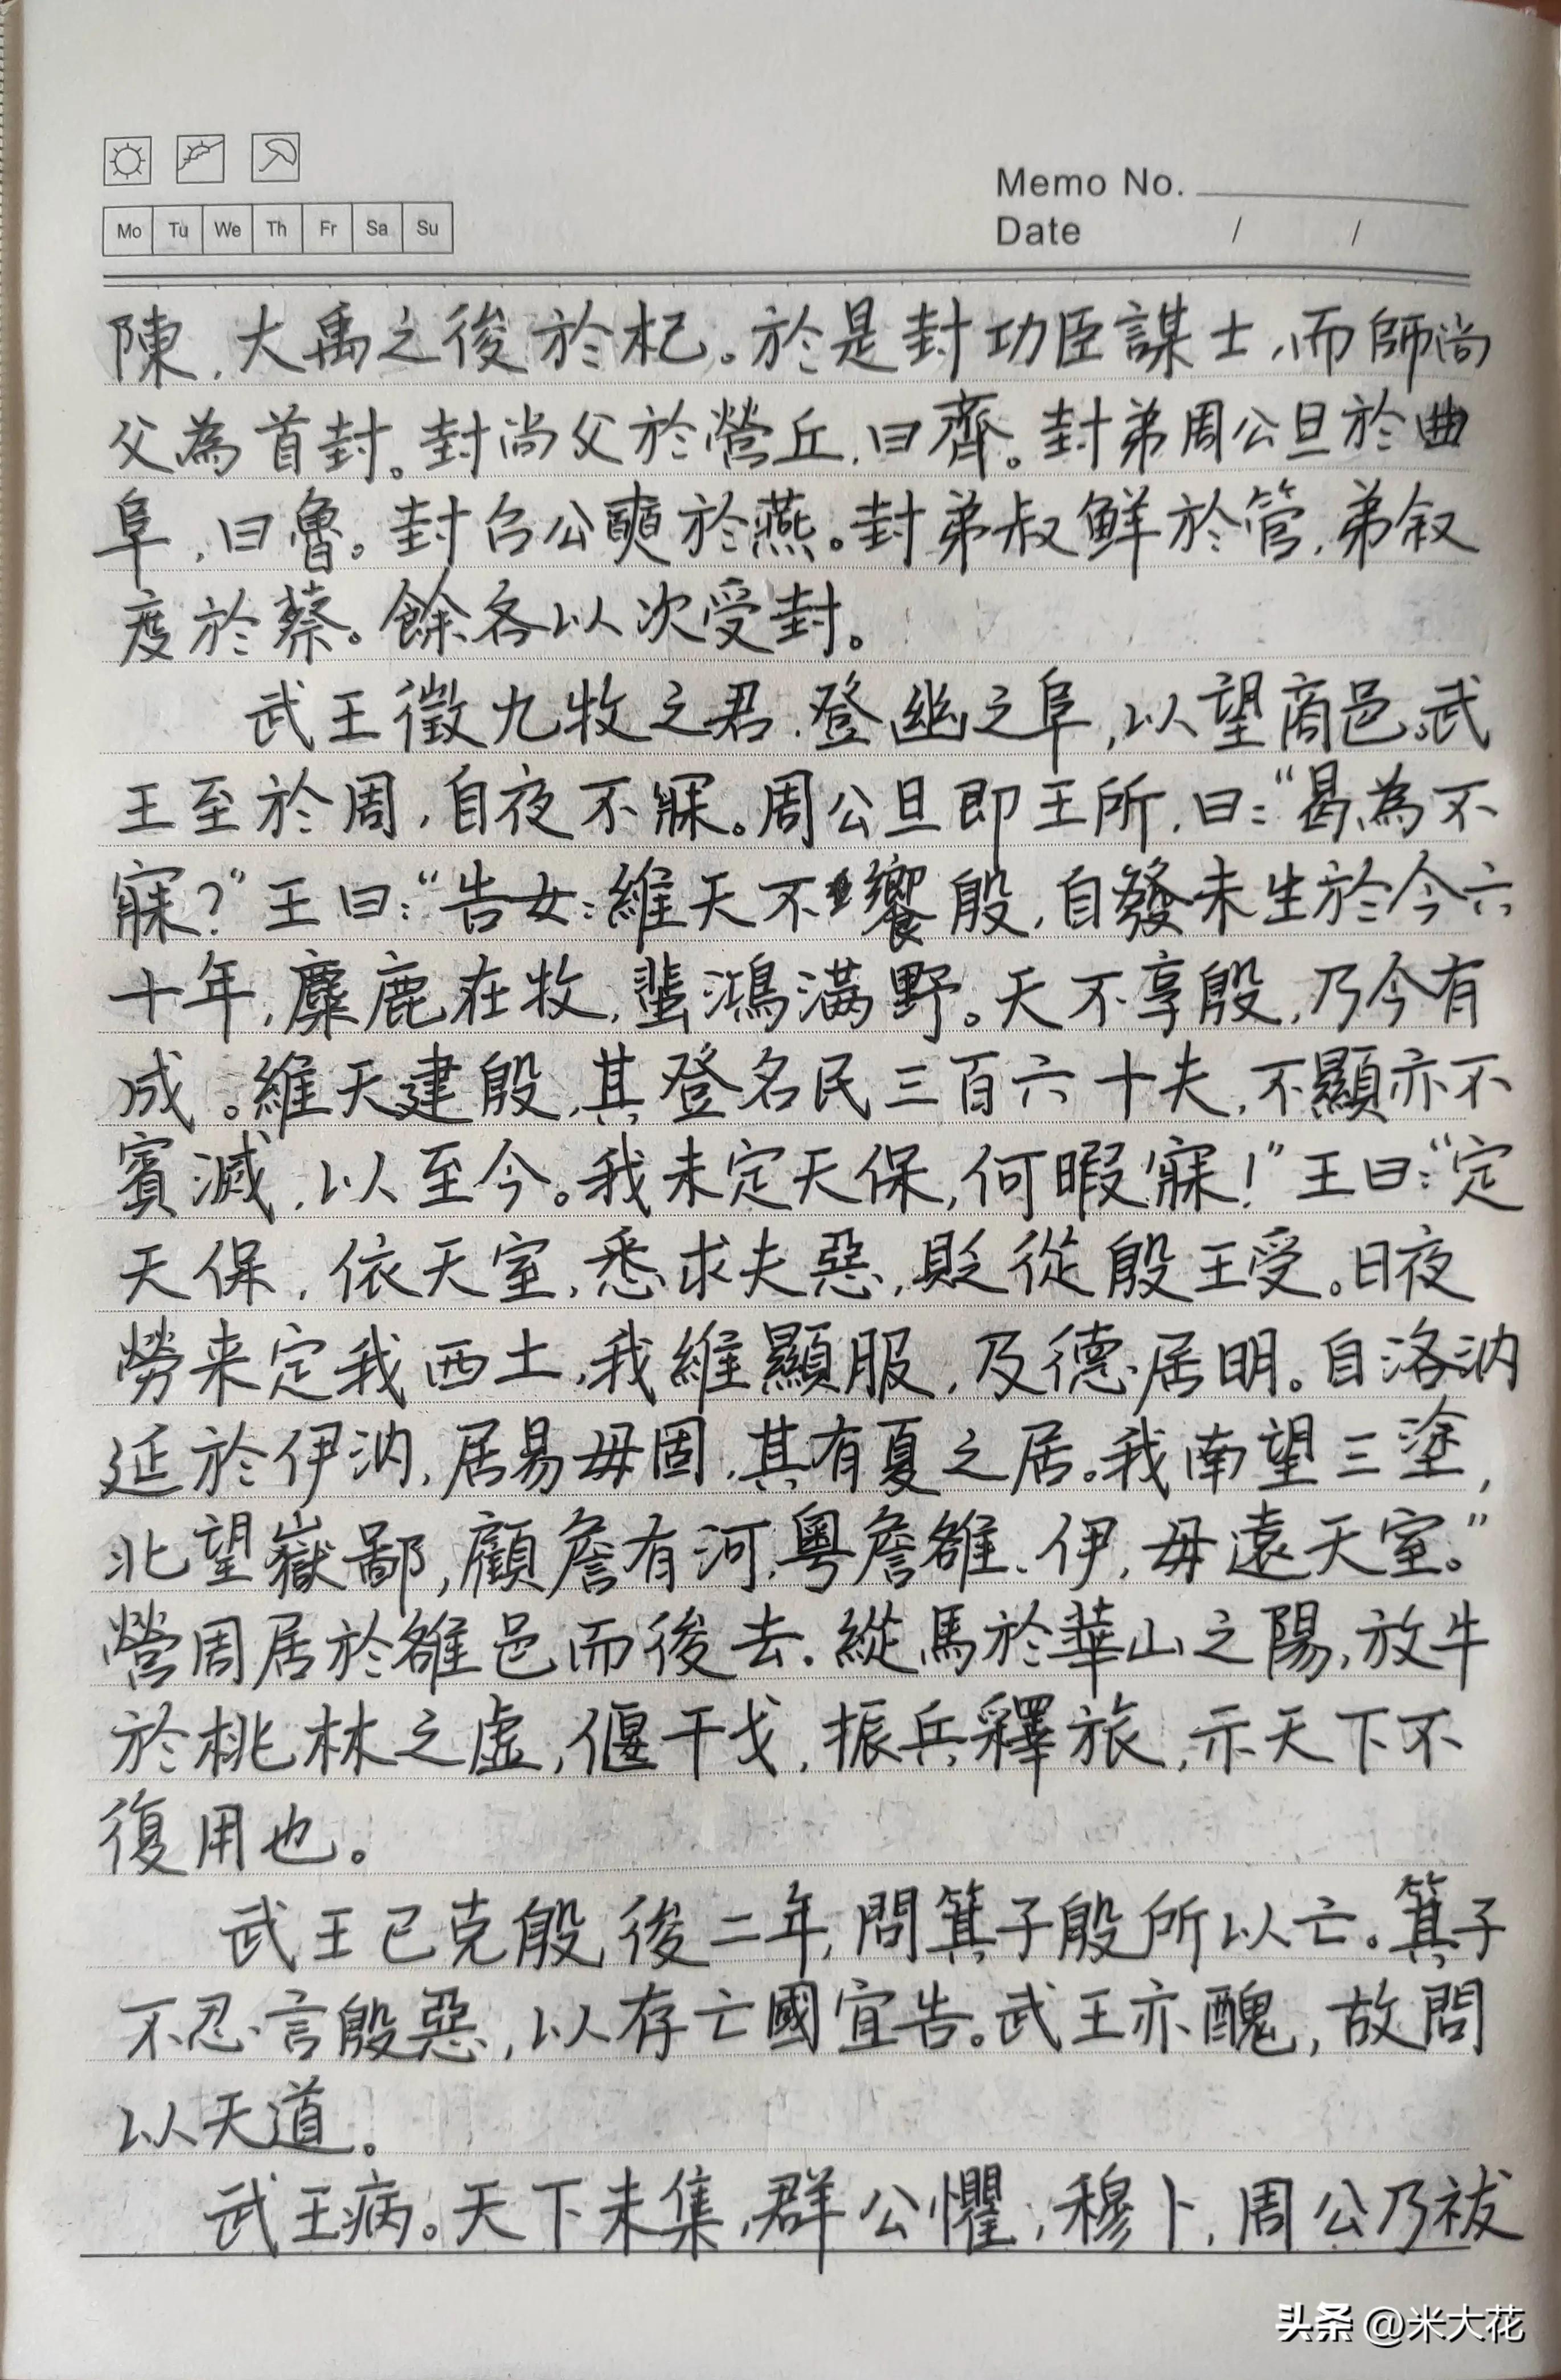 Memo No.
Mo Tu We Th Fr Sa Su
Date / /
陳,大禹之後於杞。於是封功臣謀士,而師尚
父為首封。封尚父於營丘,曰齊。封弟周公旦於曲
阜,曰魯。封召公奭於燕。封弟叔鮮於管,弟叔
度於蔡。餘各以次受封。
武王徵九牧之君,登豳之阜,以望商邑。武
王至於周,自夜不寐。周公旦即王所,曰:“曷為不
寐?”王曰:“告女:維天不饗殷,自發未生於今六
十年,麋鹿在牧,蜚鴻满野。天不享殷,乃今有
成。維天建殷,其登名民三百六十夫,不顯亦不
賓滅,以至今。我未定天保,何暇寐!”王曰:“定
天保,依天室,悉求夫惡,貶從殷王受。日夜
勞来定我西土,我維顯服,及德居明。自洛汭
延於伊汭,居易毋固,其有夏之居。我南望三塗,
北望嶽鄙,顧詹有河,粵詹雒、伊,毋遠天室。”
營周居於雒邑而後去。縱馬於華山之陽,放牛
於桃林之虚,偃干戈,振兵釋旅,示天下不
復用也。
武王已克殷,後二年,問箕子殷所以亡。箕子
不忍言殷惡,以存亡國宜告。武王亦醜,故問
以天道。
武王病。天下未集,群公懼,穆卜,周公乃祓
头条 @米大花